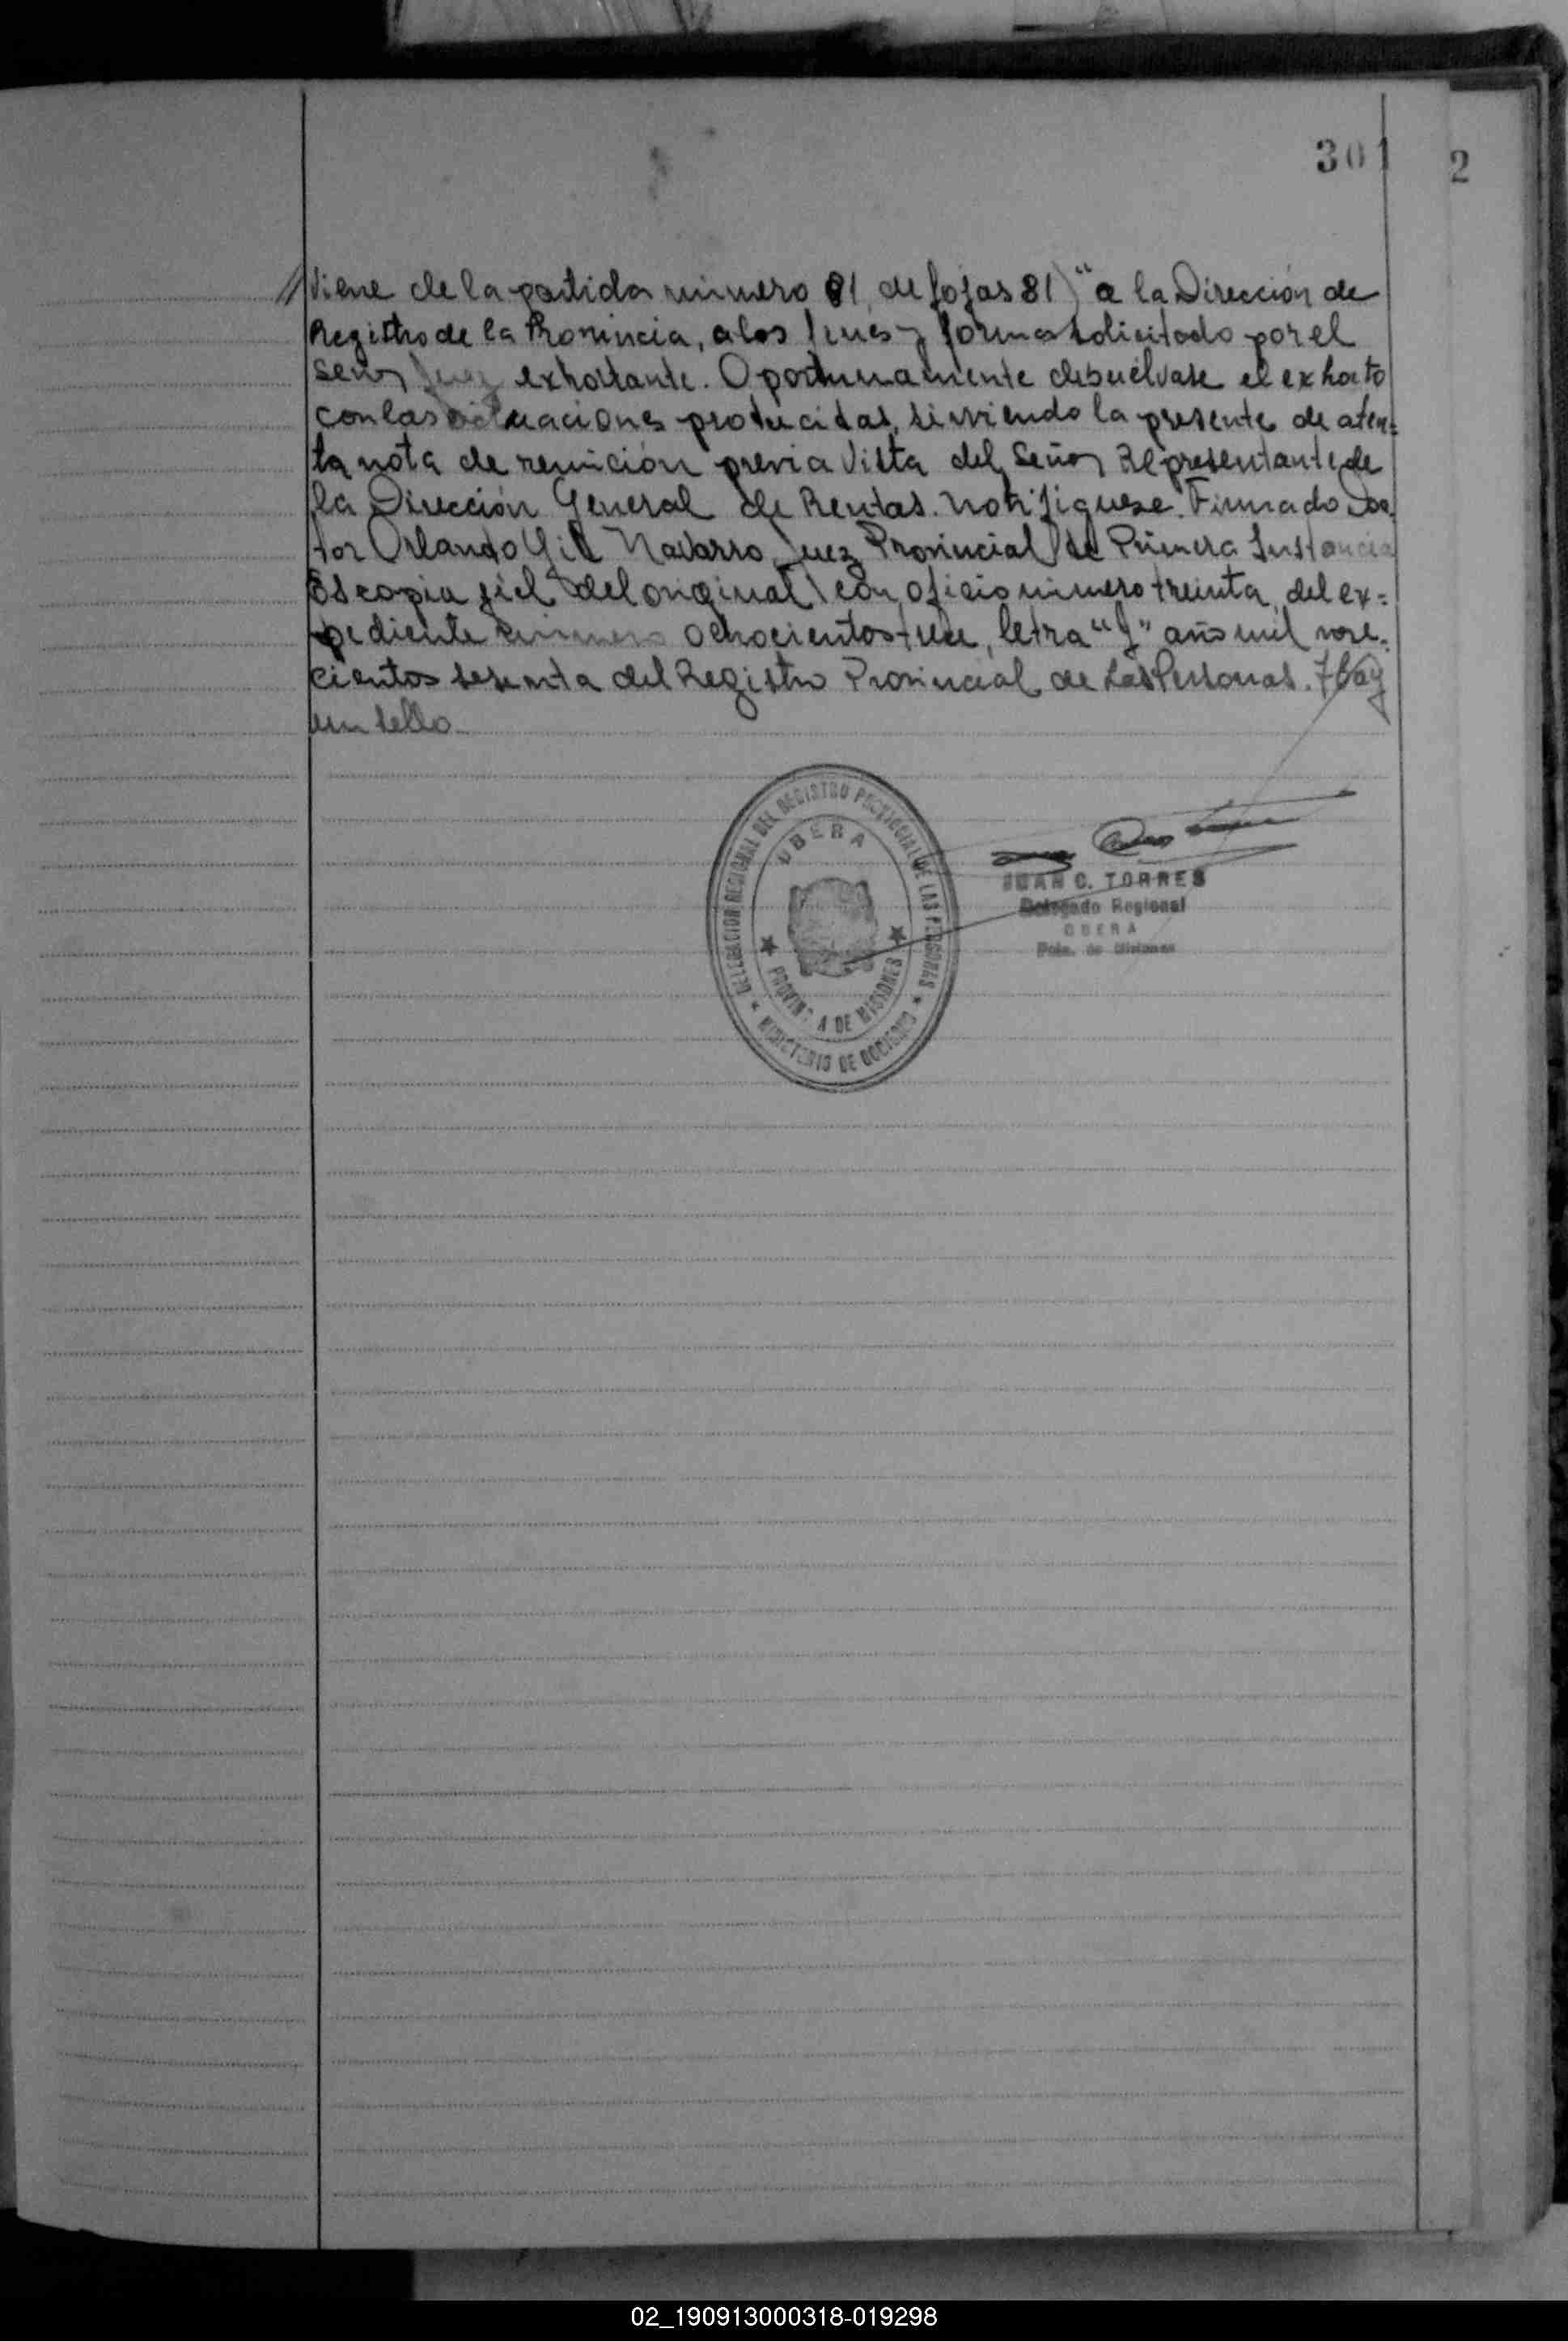 301
2
// Viene de la partida número 81, de fojas 81) "a la Dirección de
Registro de la Provincia, a los fines y forma solicitado por el
Señor Juez exhortante. Oportunamente desuélvase el exhorto
con las actuaciones producidas, sirviendo la presente de aten=
ta nota de remición previa Vista del Señor Representante de
la Dirección General de Rentas. Notifiquese. Firmado Doc
tor Orlando Gil Navarro, Juez Provincial de Primera Instancia
Es copia fiel del original con oficio número treinta, del ex=
pediente número ochocientos trece, letra "J" año mil nove.
cientos sesenta del Registro Provincial de Las Personas. Hay
un sello.
DELEGACION REGIONAL DEL REGISTRO PROVINCIAL DE LAS PERSONAS
OBERA
PROVINCIA DE MISIONES
MINISTERIO DE GOBIERNO
JUAN C. TORRES
Delegado Regional
OBERA
Pcia. de Misiones
02_190913000318-019298